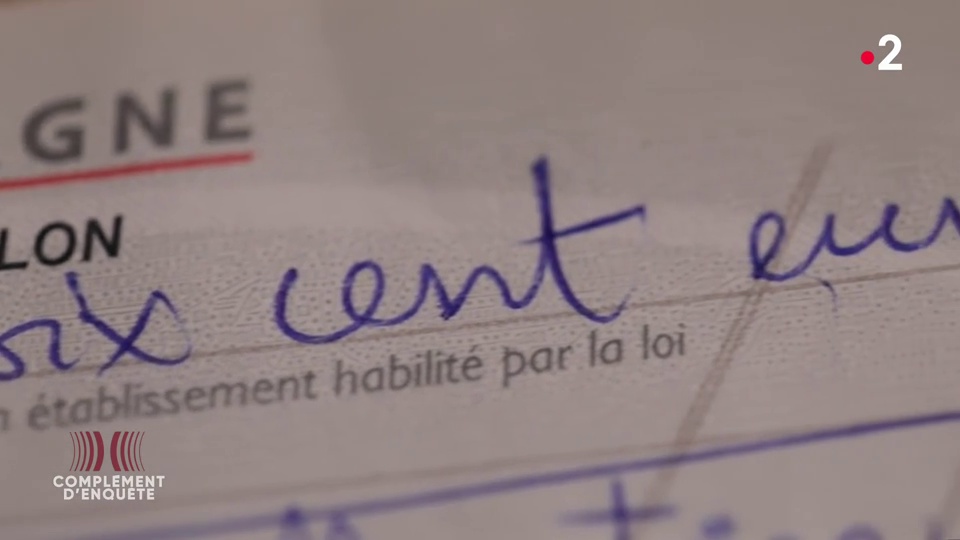 2
GNE
LON
six cent eur
établissement habilité par la loi
COMPLÉMENT
D'ENQUÊTE